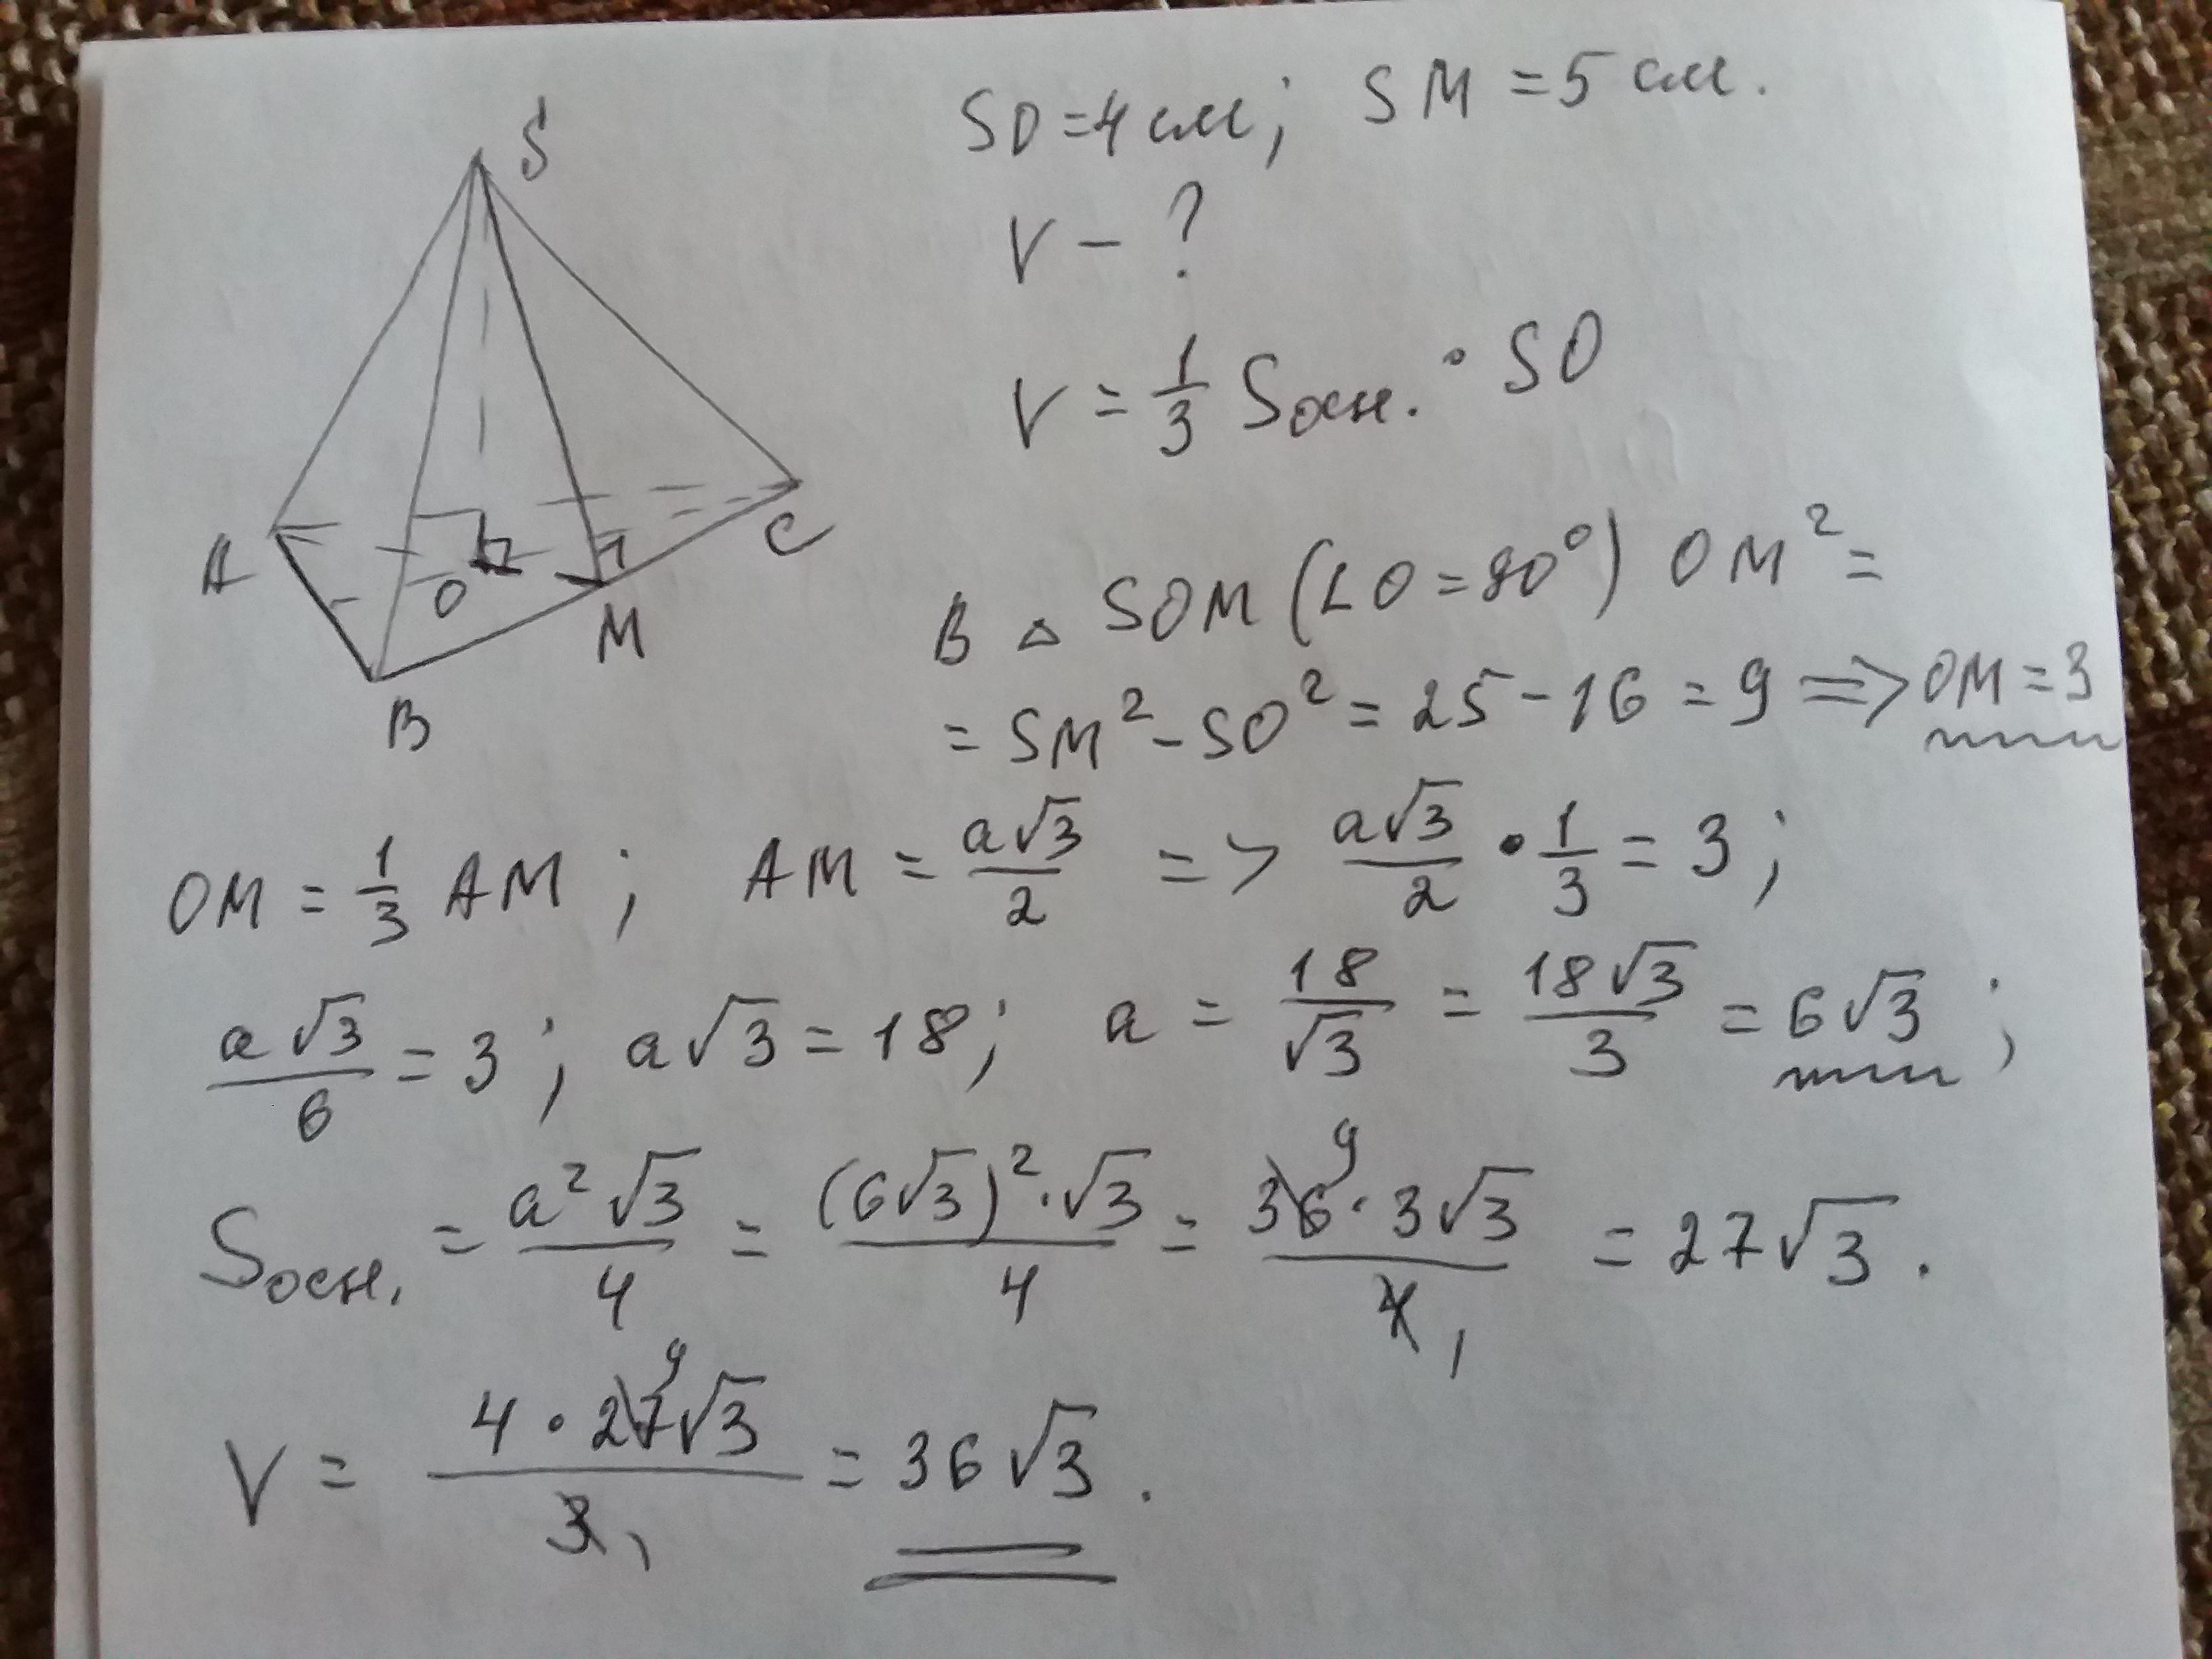 S
A
B
C
O
M
SO = 4 см; SM = 5 см.
V - ?
V = 1/3 Sосн. · SO
В △ SOM (∠O = 90°) OM² =
= SM² - SO² = 25 - 16 = 9 => OM = 3
OM = 1/3 AM; AM = a√3/2 => a√3/2 · 1/3 = 3;
a√3/6 = 3; a√3 = 18; a = 18/√3 = 18√3/3 = 6√3;
Sосн. = a²√3/4 = (6√3)²·√3/4 = 36·3√3/4 = 27√3.
V = 4 · 27√3/3 = 36√3.